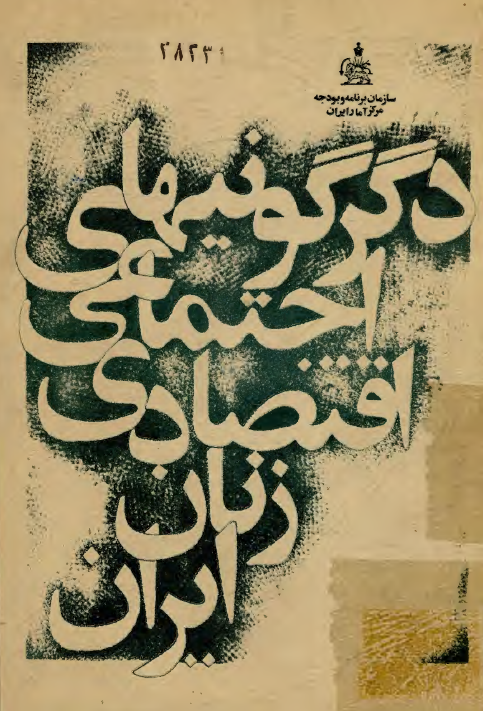 ۲۸۲۳۱
سازمان برنامه و بودجه
مرکز آمار ایران
دگرگونیهای
اجتماعی
اقتصادی
زنان
ایران